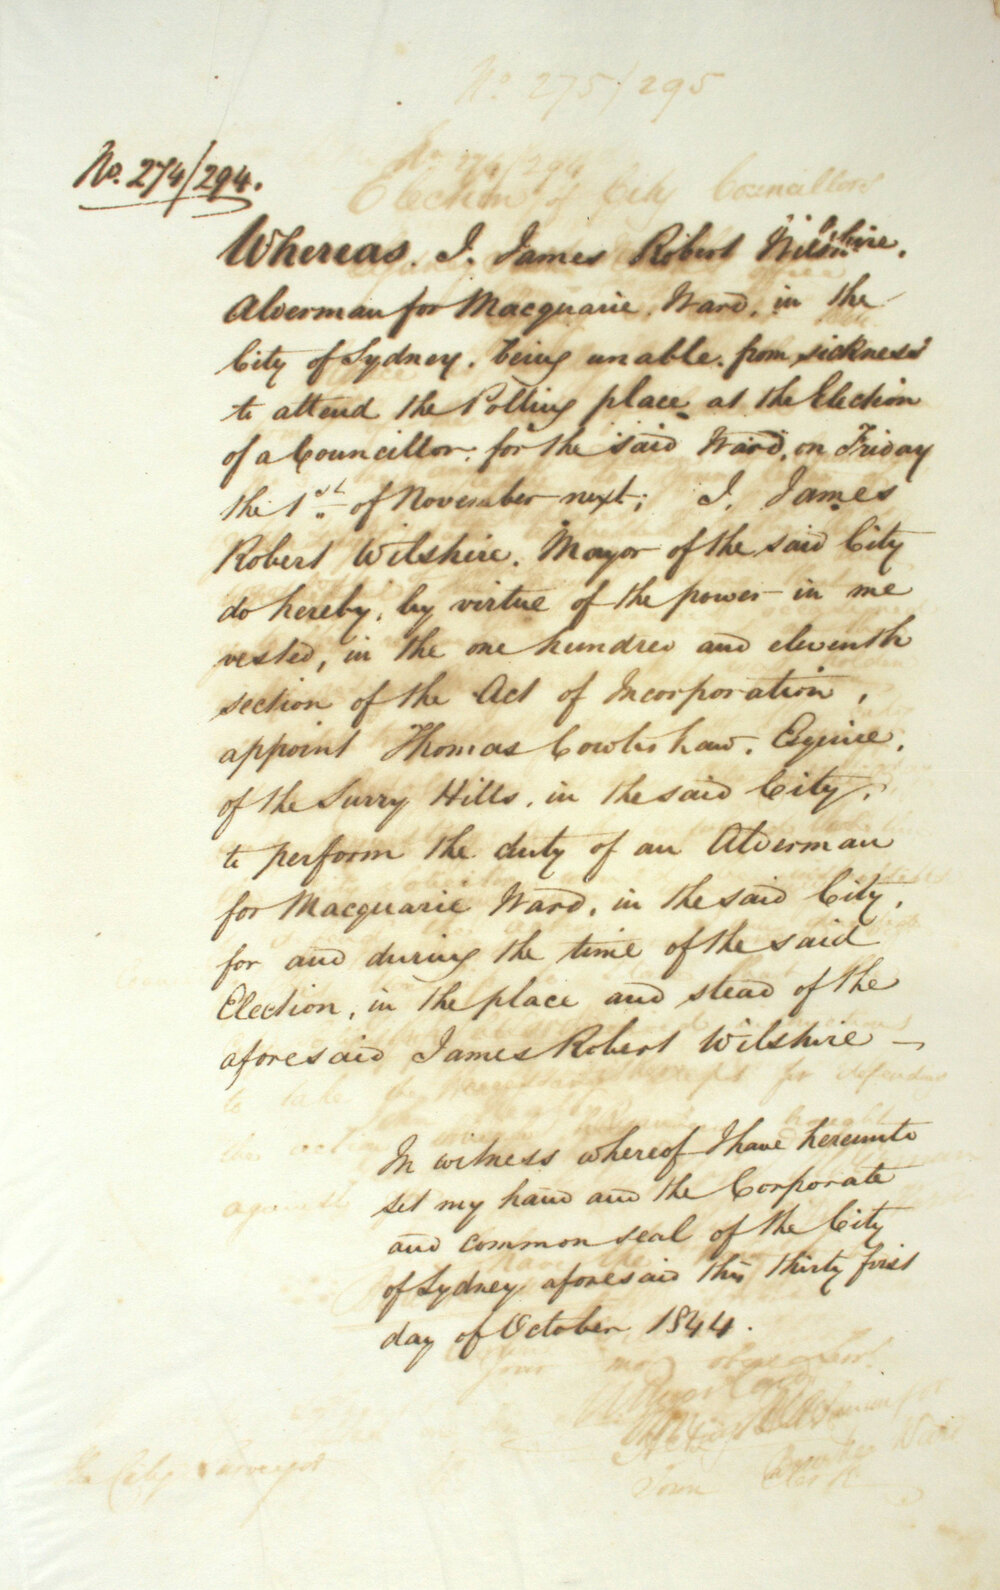 No. 275/295
No. 274/294.
Election of City Councillors
Whereas. I. James Robert Wilshire.
Alderman for Macquarie Ward. in the
City of Sydney. being unable. from sickness
to attend the Polling place at the Election
of a Councillor. for the said Ward. on Friday
the 1st of November next; I. James
Robert Wilshire. Mayor of the said City
do hereby, by virtue of the power in me
vested, in the one hundred and eleventh
section of the Act of Incorporation,
appoint Thomas Cowlishaw. Esquire.
of the Surry Hills. in the said City.
to perform the duty of an Alderman
for Macquarie Ward. in the said City.
for and during the time of the said
Election, in the place and stead of the
aforesaid James Robert Wilshire —
to take the necessary steps for defending
against
In witness whereof I have hereunto
set my hand and the Corporate
and common seal of the City
of Sydney aforesaid this thirty first
day of October 1844.
Town Clerk